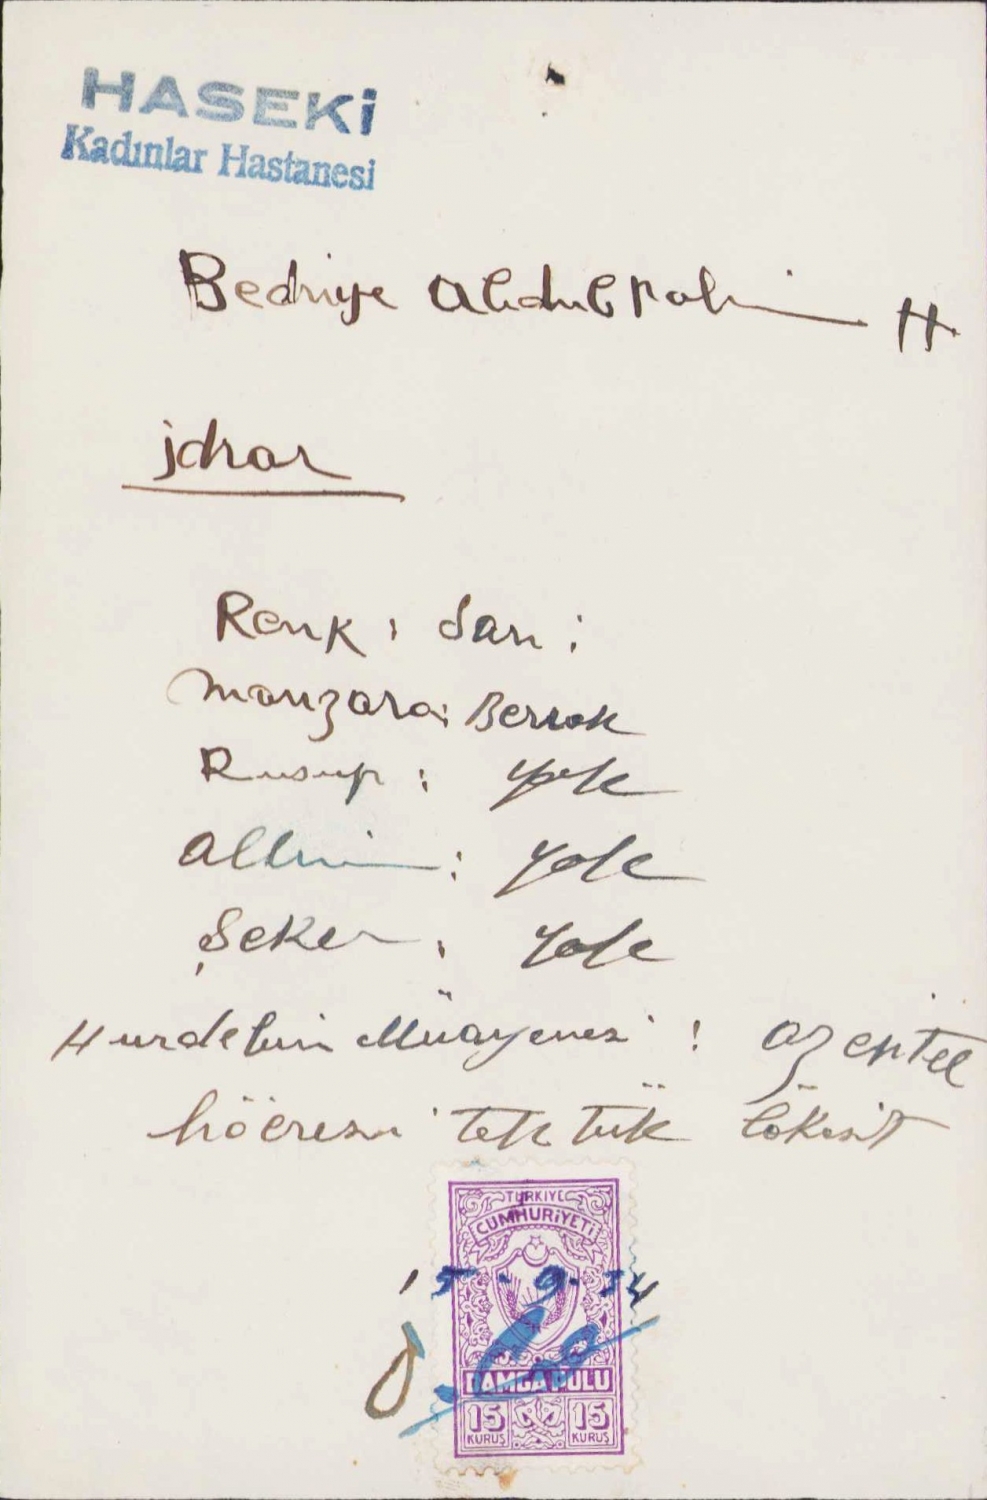 HASEKİ
Kadınlar Hastanesi
Bedriye Abdulkalim H.
idrar
Renk : Sarı ;
Manzara: Berrak
Rusup : yok
Albumin : yok
Şeker : yok
Hurdebin Müayenesi : az eptel
höcresi tek tük lökosit
TÜRKİYE
CUMHURİYETİ
15-9-54
DAMGA PULU
15 15
KURUŞ KURUŞ